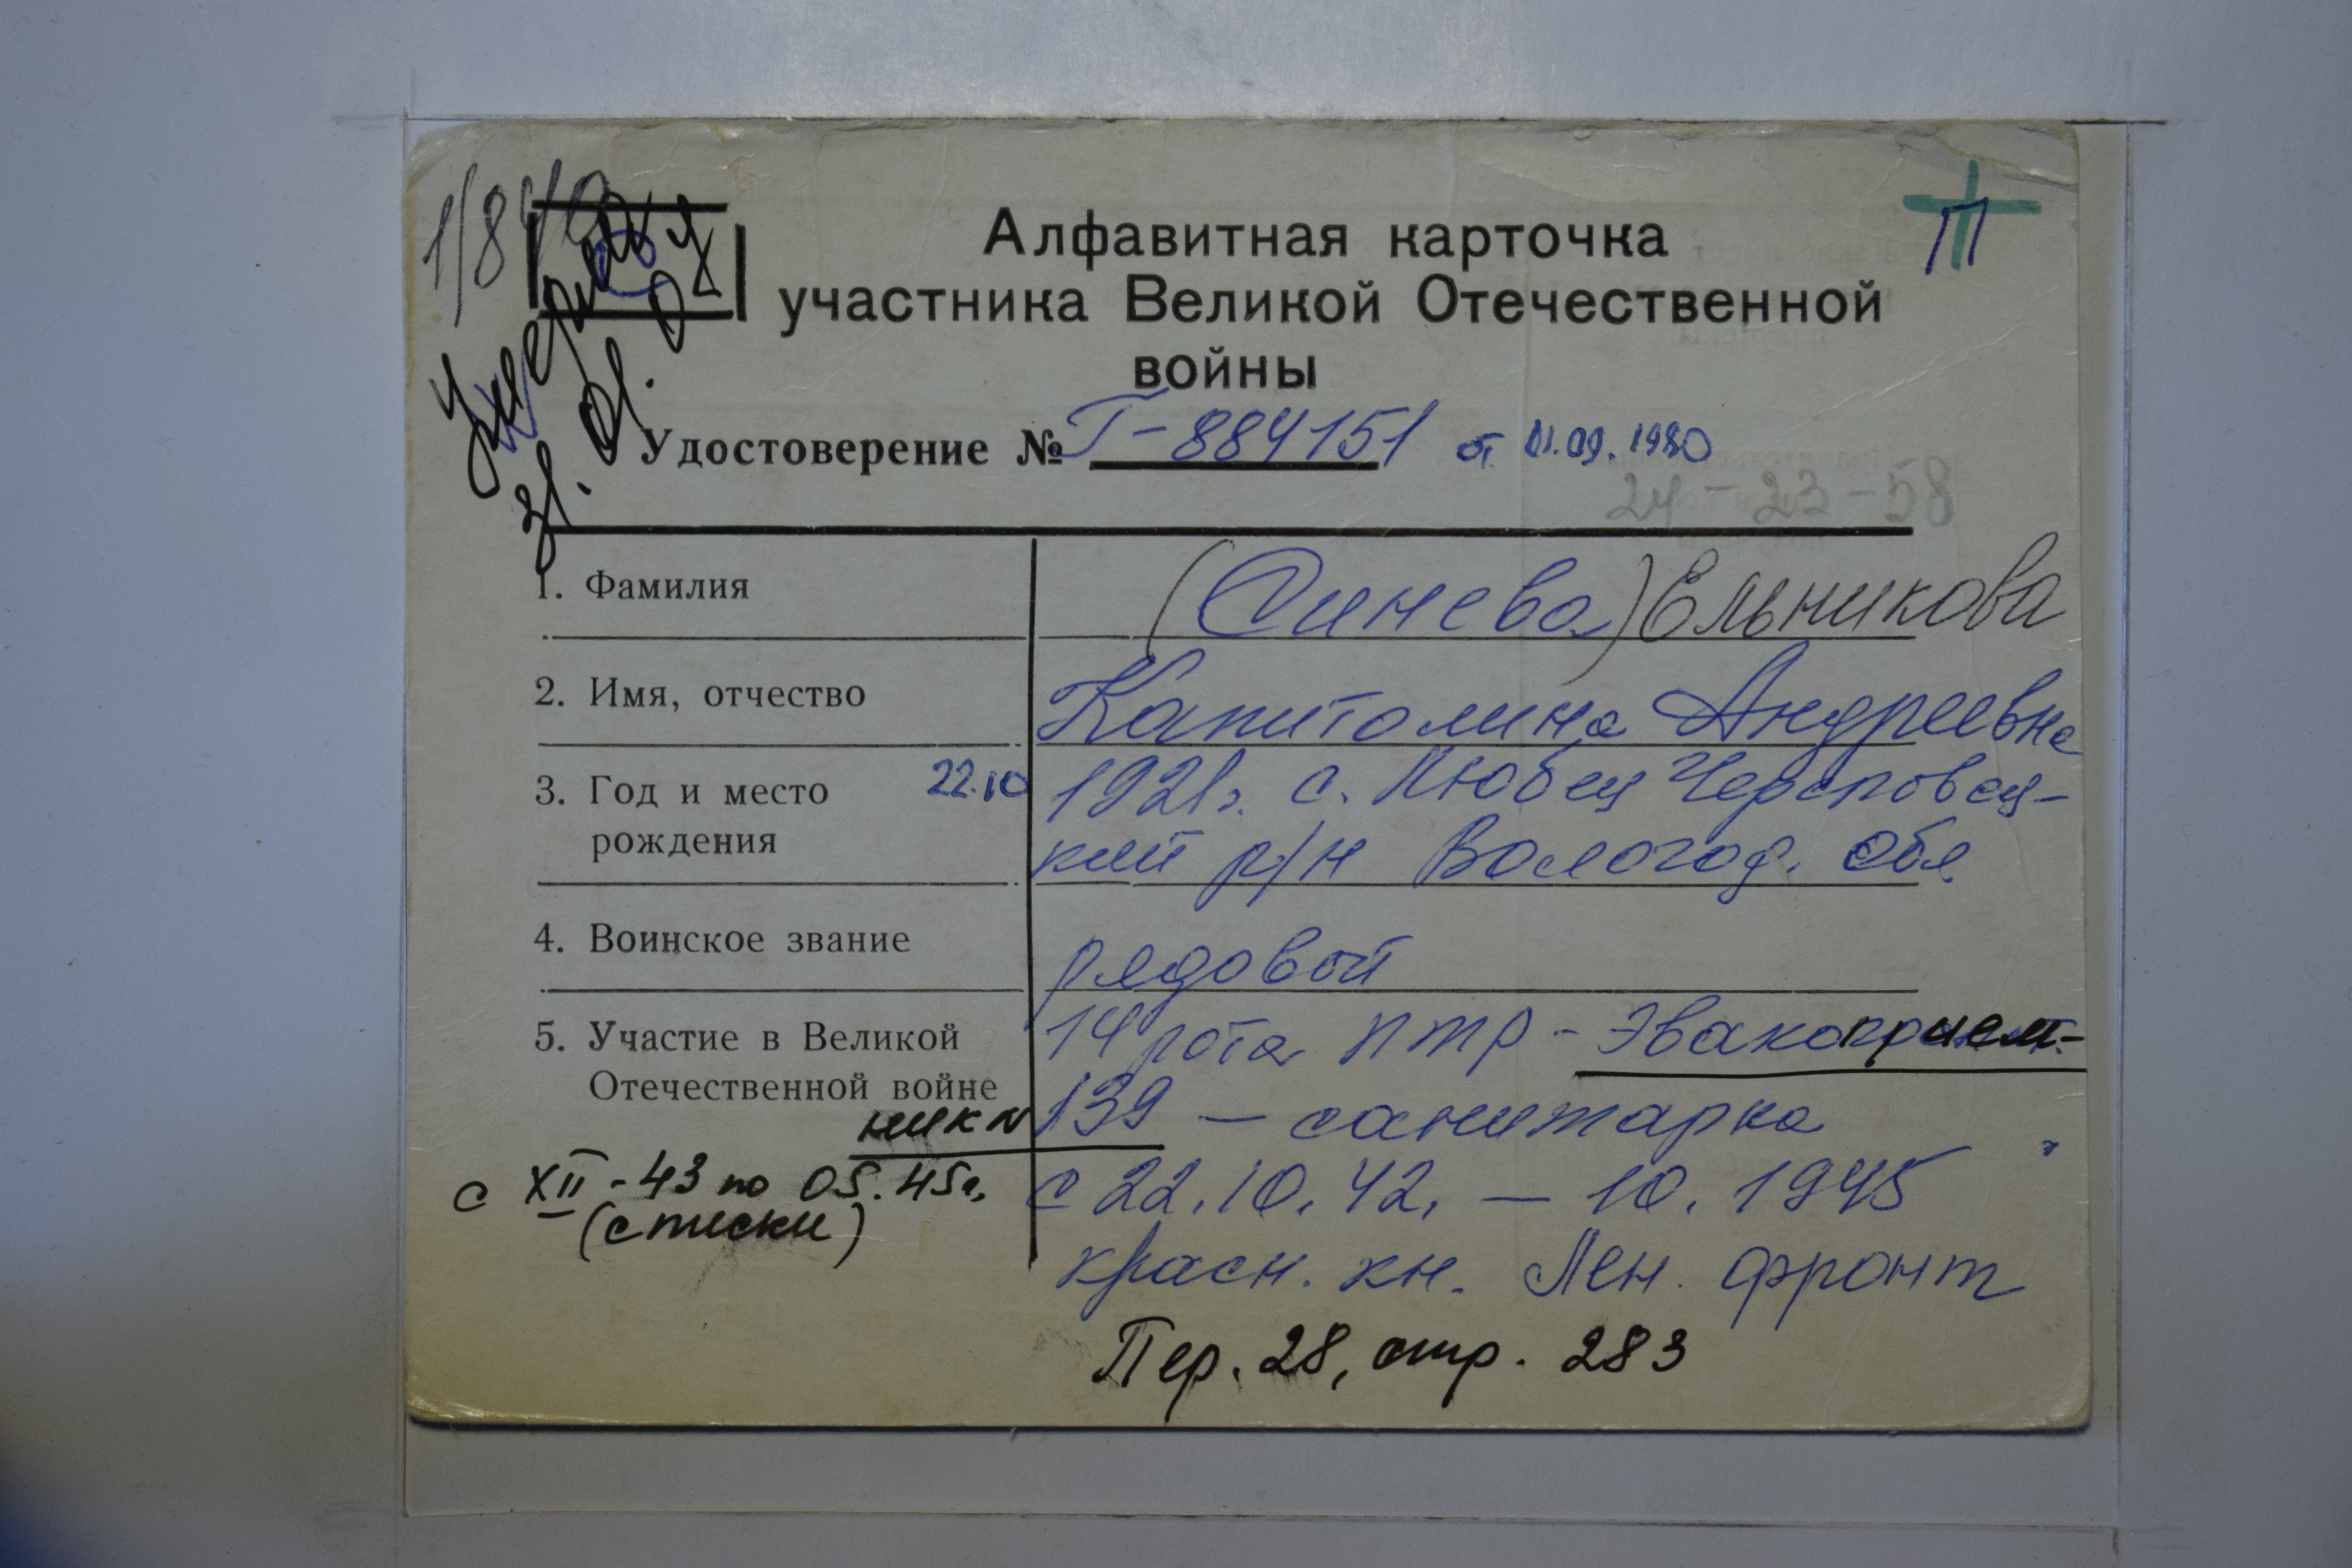 Алфавитная карточка
участника Великой Отечественной
войны
П
умерла
31.01.02
Удостоверение № Г-884151 от 01.09.1980
24-23-58
1. Фамилия (Синева) Ельникова
2. Имя, отчество Капитолина Андреевна
3. Год и место 22.10 1921г. с. Любец Череповец-
рождения кий р/н Вологод. обл.
4. Воинское звание рядовой
5. Участие в Великой 14 рота ПТР - Эвакоприем-
Отечественной войне
ник N 139 - санитарка
с XII-43 по 05.45г. с 22.10.42. - 10.1945
(списки)
красн. кн. Лен. фронт
Пер. 28, стр. 283